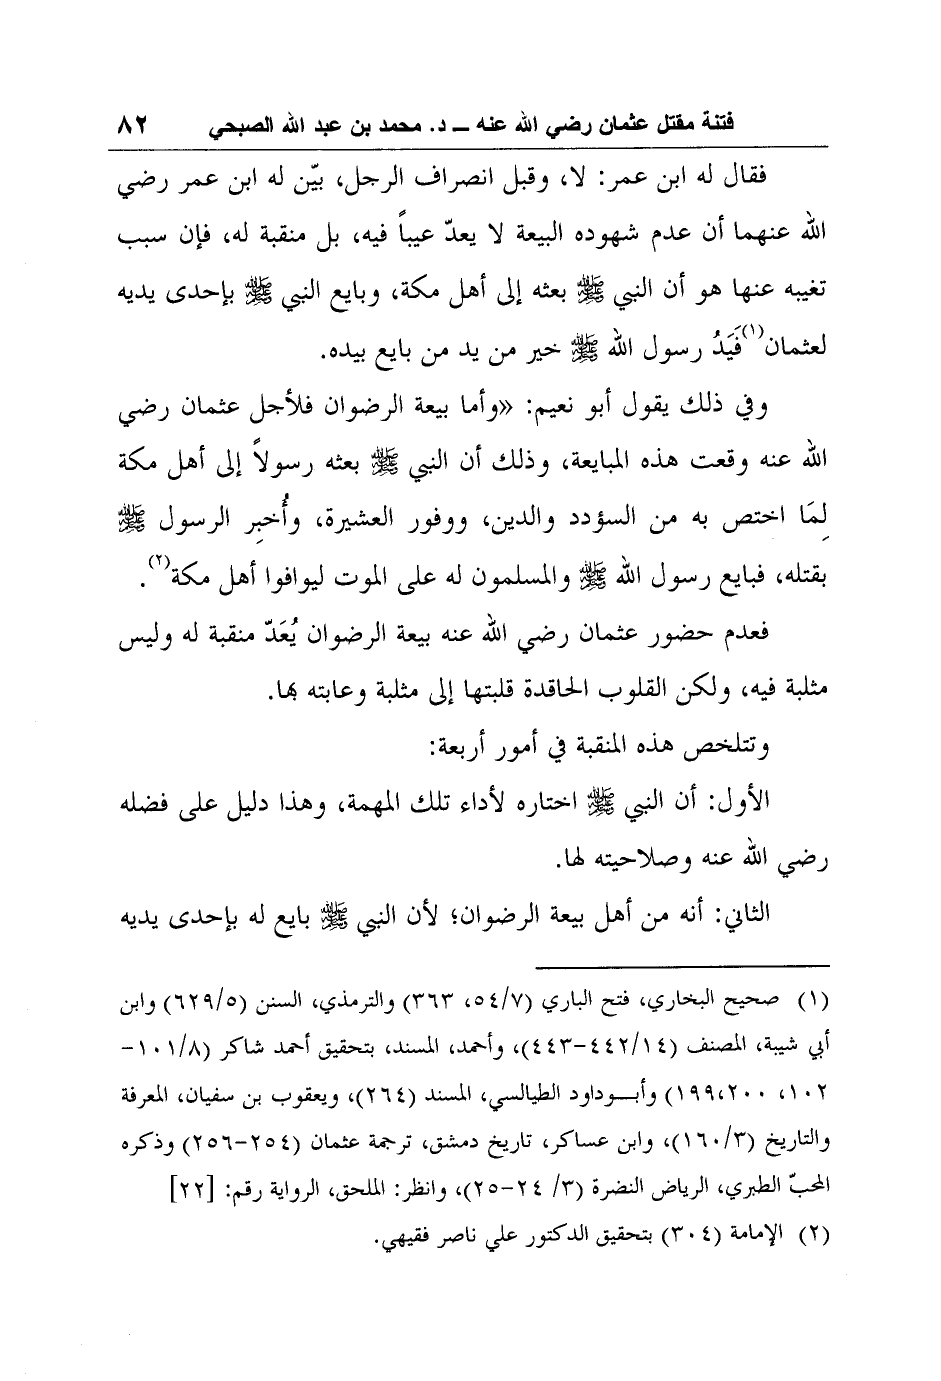 فتنة مقتل عثمان رضي الله عنه ــ د. محمد بن عبد الله الصبحي ٨٢
فقال له ابن عمر: لا، وقبل انصراف الرجل، بيّن له ابن عمر رضي
الله عنهما أن عدم شهوده البيعة لا يعدّ عيباً فيه، بل منقبة له، فإن سبب
تغيبه عنها هو أن النبي ﷺ بعثه إلى أهل مكة، وبايع النبي ﷺ بإحدى يديه
لعثمان(١) فَيَدُ رسول الله ﷺ خير من يد من بايع بيده.
وفي ذلك يقول أبو نعيم: «وأما بيعة الرضوان فلأجل عثمان رضي
الله عنه وقعت هذه المبايعة، وذلك أن النبي ﷺ بعثه رسولاً إلى أهل مكة
لِمَا اختص به من السؤدد والدين، ووفور العشيرة، وأُخبِر الرسول ﷺ
بقتله، فبايع رسول الله ﷺ والمسلمون له على الموت ليوافوا أهل مكة(٢).
فعدم حضور عثمان رضي الله عنه بيعة الرضوان يُعَدّ منقبة له وليس
مثلبة فيه، ولكن القلوب الحاقدة قلبتها إلى مثلبة وعابته بها.
وتتلخص هذه المنقبة في أمور أربعة:
الأول: أن النبي ﷺ اختاره لأداء تلك المهمة، وهذا دليل على فضله
رضي الله عنه وصلاحيته لها.
الثاني: أنه من أهل بيعة الرضوان؛ لأن النبي ﷺ بايع له بإحدى يديه
(١) صحيح البخاري، فتح الباري (٥٤/٧، ٣٦٣) والترمذي، السنن (٦٢٩/٥) وابن
أبي شيبة، المصنف (٤٤٢/١٤-٤٤٣)، وأحمد، المسند، بتحقيق أحمد شاكر (١٠١/٨-
١٠٢، ١٩٩،٢٠٠) وأبـــوداود الطيالسي، المسند (٢٦٤)، ويعقوب بن سفيان، المعرفة
والتاريخ (١٦٠/٣)، وابن عساكر، تاريخ دمشق، ترجمة عثمان (٢٥٤-٢٥٦) وذكره
المحبّ الطبري، الرياض النضرة (٣/ ٢٤-٢٥)، وانظر: الملحق، الرواية رقم: [٢٢]
(٢) الإمامة (٣٠٤) بتحقيق الدكتور علي ناصر فقيهي.